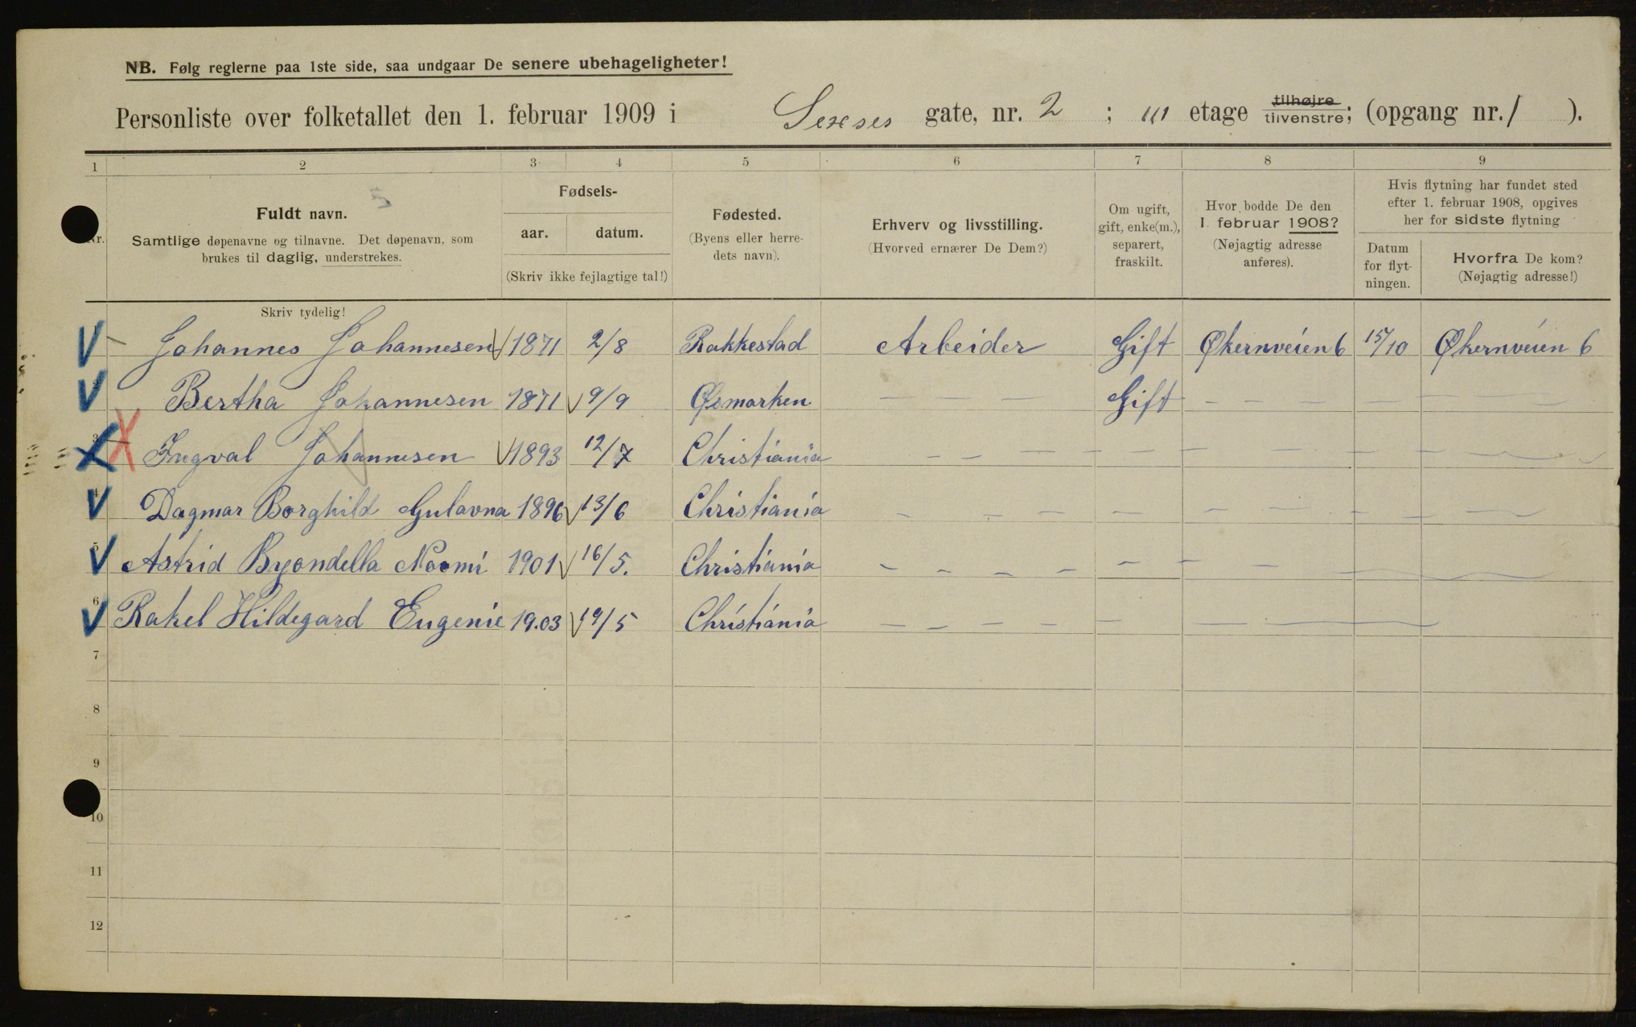 NB. Følg reglerne paa 1ste side, saa undgaar De senere ubehageligheter!
Personliste over folketallet den 1. februar 1909 i Sexes gate, nr. 2 ; III etage tilhøjre tilvenstre; (opgang nr. / ).
1 2 3 4 5 6 7 8 9
Nr.
Fuldt navn.
Samtlige døpenavne og tilnavne. Det døpenavn, som
brukes til daglig, understrekes.
Fødsels-
aar. datum.
(Skriv ikke fejlagtige tal!)
Fødested.
(Byens eller herre-
dets navn).
Erhverv og livsstilling.
(Hvorved ernærer De Dem?)
Om ugift,
gift, enke(m.),
separert,
fraskilt.
Hvor bodde De den
1. februar 1908?
(Nøjagtig adresse
anføres).
Hvis flytning har fundet sted
efter 1. februar 1908, opgives
her for sidste flytning
Datum
for flyt-
ningen.
Hvorfra De kom?
(Nøjagtig adresse!)
Skriv tydelig!
Johannes Johannesen 1871 2/8 Rakkestad Arbeider Gift Økernveien 6 15/10 Økernveien 6
Bertha Johannesen 1871 9/9 Øsmarken — — Gift — — — — — —
3 Ingval Johannesen 1893 12/7 Christiania — — — — — — — — —
Dagmar Borghild Gulavna 1896 13/6 Christiania — — — — — — — — —
5 Astrid Byondella Noomi 1901 16/5. Christiania — — — — — — — — —
6 Rakel Hildegard Eugenie 19.03 19/5 Christiania — — — — — —
7
8
9
10
11
12